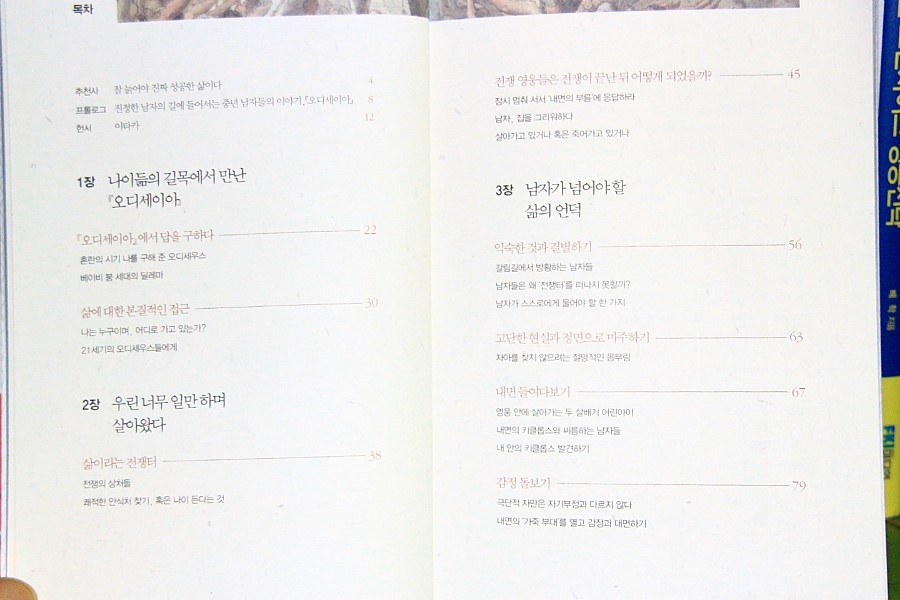 목차
추천사 잘 늙어야 진짜 성공한 삶이다 4
프롤로그 진정한 남자의 길에 들어서는 중년 남자들의 이야기, 『오디세이아』 8
헌시 이타카 12
1장 나이듦의 길목에서 만난
『오디세이아』
『오디세이아』에서 답을 구하다 22
혼란의 시기 나를 구해 준 오디세우스
베이비 붐 세대의 딜레마
삶에 대한 본질적인 접근 30
나는 누구이며, 어디로 가고 있는가?
21세기의 오디세우스들에게
2장 우린 너무 일만 하며
살아왔다
삶이라는 전쟁터 38
전쟁의 상처들
쾌적한 안식처 찾기, 혹은 나이 든다는 것
전쟁 영웅들은 전쟁이 끝난 뒤 어떻게 되었을까? 45
잠시 멈춰 서서 '내면의 부름'에 응답하라
남자, 집을 그리워하다
살아가고 있거나 혹은 죽어가고 있거나
3장 남자가 넘어야 할
삶의 언덕
익숙한 것과 결별하기 56
갈림길에서 방황하는 남자들
남자들은 왜 '전쟁터'를 떠나지 못할까?
남자가 스스로에게 물어야 할 한 가지
고단한 현실과 정면으로 마주하기 63
자아를 찾지 않으려는 절망적인 몸부림
내면 들여다보기 67
영웅 안에 살아가는 두 살배기 어린아이
내면의 키클롭스와 씨름하는 남자들
내 안의 키클롭스 발견하기
감정 돌보기 79
극단적 자만은 자기부정과 다르지 않다
내면의 '가죽 부대'를 열고 감정과 대면하기